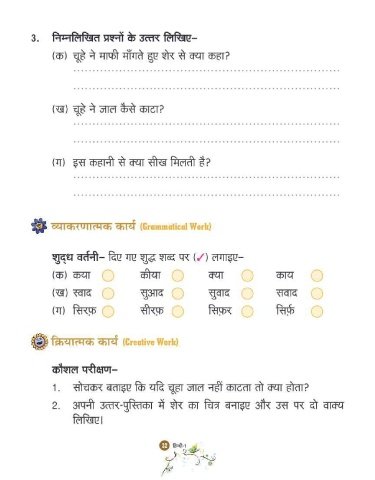 3. निम्नलिखित प्रश्नों के उत्तर लिखिए–
(क) चूहे ने माफी माँगते हुए शेर से क्या कहा?
(ख) चूहे ने जाल कैसे काटा?
(ग) इस कहानी से क्या सीख मिलती है?
व्याकरणात्मक कार्य (Grammatical Work)
शुद्ध वर्तनी– दिए गए शुद्ध शब्द पर (✓) लगाइए–
(क) कया कीया क्या काय
(ख) स्वाद सुआद सुवाद सवाद
(ग) सिरफ़ सीरफ़ सिफ़र सिर्फ़
क्रियात्मक कार्य (Creative Work)
कौशल परीक्षण–
1. सोचकर बताइए कि यदि चूहा जाल नहीं काटता तो क्या होता?
2. अपनी उत्तर-पुस्तिका में शेर का चित्र बनाइए और उस पर दो वाक्य
लिखिए।
22 हिन्दी-1